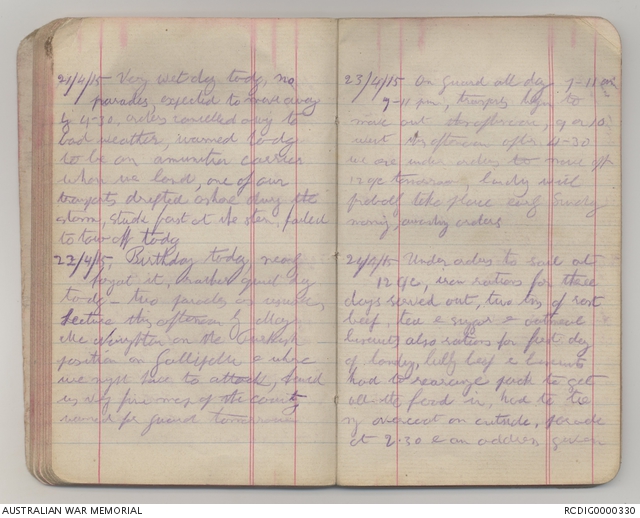 21/4/15 Very wet day today, no
parades, expected to move away
by 4-30, orders cancelled owing to
bad weather, warned today
to be an ammunition carrier
when we land, one of our
transports drifted ashore during the
storm, stuck fast at the stern, failed
to tow off today
22/4/15 Birthday today, nearly
forgot it, rather quiet day
today - two parades as usual,
lecture this afternoon by Major
McNaughton on the Turkish
position on Gallipoli & where
we might have to attack, issued
us very fine maps of the country,
warned for guard tomorrow
23/4/15 On guard all day 9-11 am
9-11 pm, transports began to
move out this afternoon, 9 or 10
went this afternoon after 4-30
we are under orders to move off
12 o/c tomorrow, landing will
probably take place early Sunday
morning, awaiting orders
24/4/15 Under orders to sail at
12 o/c, iron rations for three
days served out, two tins of roast
beef, tea & sugar & oatmeal
biscuits also rations for first day
of landing, bully beef & biscuits
had to rearrange pack to get
all the food in, had to tie
my overcoat on outside, parade
at 2.30 & an address given
AUSTRALIAN WAR MEMORIAL
RCDIG0000330